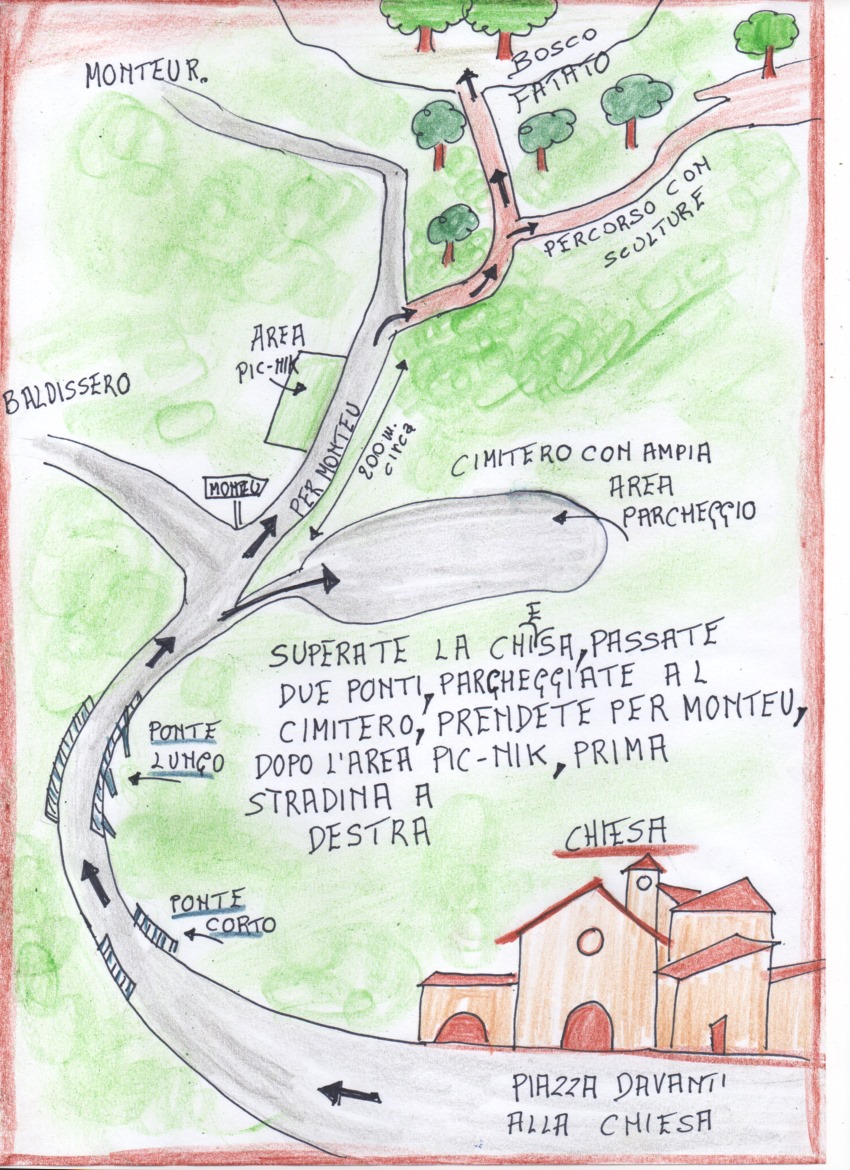 MONTEU R.
BOSCO
FATATO
PERCORSO CON
SCULTURE
AREA
PIC-NIK
BALDISSERO
PER MONTEU
200 m.
circa
MONTEU
CIMITERO CON AMPIA
AREA
PARCHEGGIO
SUPERATE LA CHIESA, PASSATE
DUE PONTI, PARCHEGGIATE AL
CIMITERO, PRENDETE PER MONTEU,
DOPO L'AREA PIC-NIK, PRIMA
STRADINA A
DESTRA
PONTE
LUNGO
CHIESA
PONTE
CORTO
PIAZZA DAVANTI
ALLA CHIESA